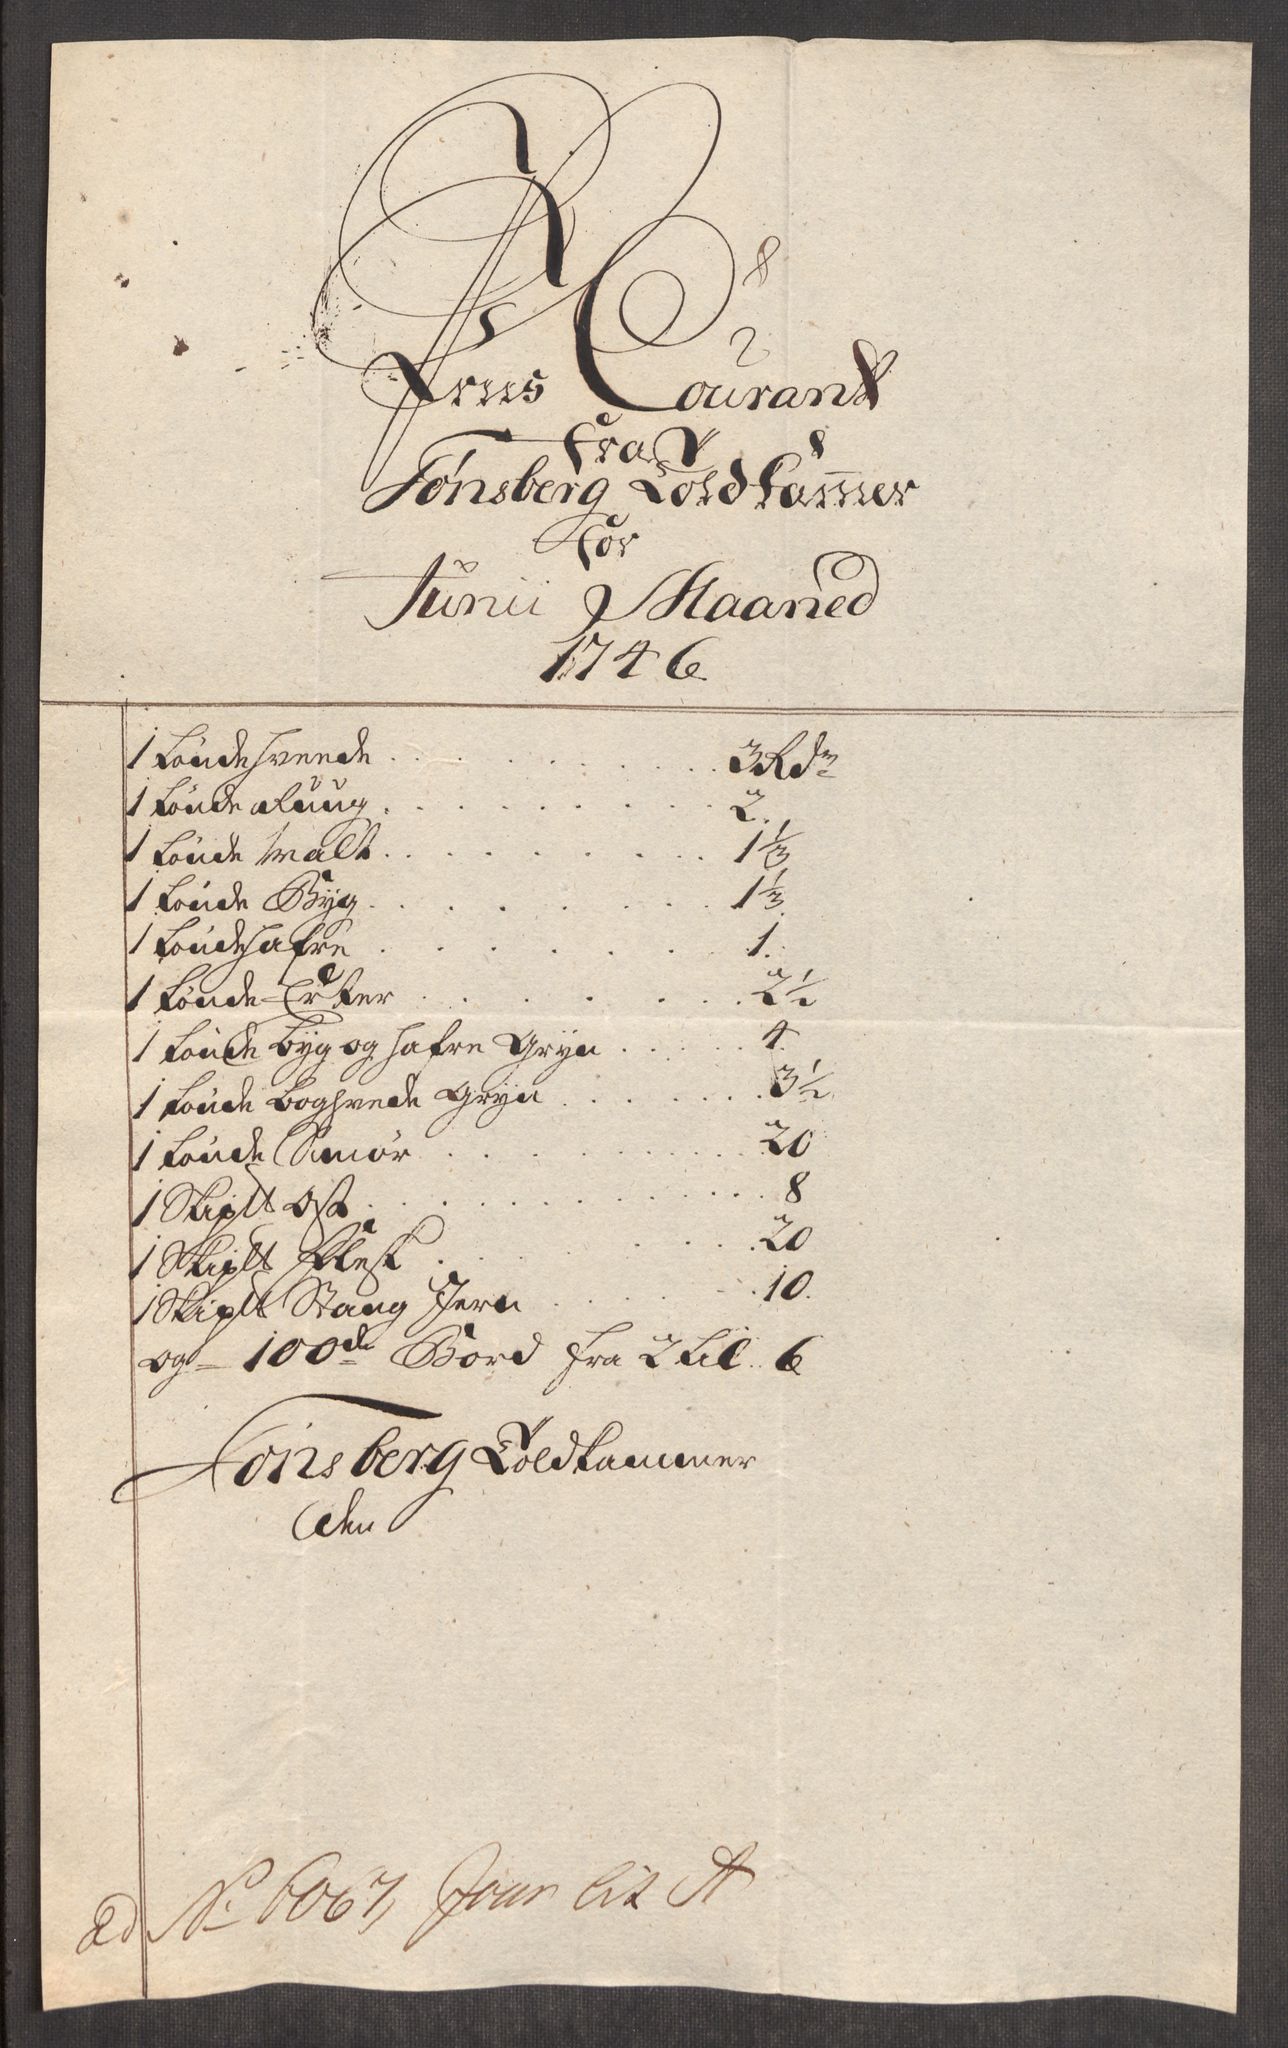 Priis Courant
fra
Tønsberg Toldkam̅er
for
Junii Maaned
1746
1 Tønde hveede . . . 3 Rdr
1 Tønde Ruug . . . 2.
1 Tønde Malt . . . 1 1/3
1 Tønde Byg . . . 1 1/3
1 Tønde hafre . . . 1.
1 Tønde Erter . . . 2 1/2
1 Tønde byg og hafre Gryn . . . 4.
1 Tønde boghvede Gryn . . . 3 1/2
1 Tønde Smør . . . 20
1 Skiplt Ost . . . 8
1 Skiplt Flesk . . . 20
1 Skiplt Stang Jern . . . 10.
og 100de Bord fra 2 til 6
Tønsberg Toldkammer
den
ad No 6067, Jour lit A